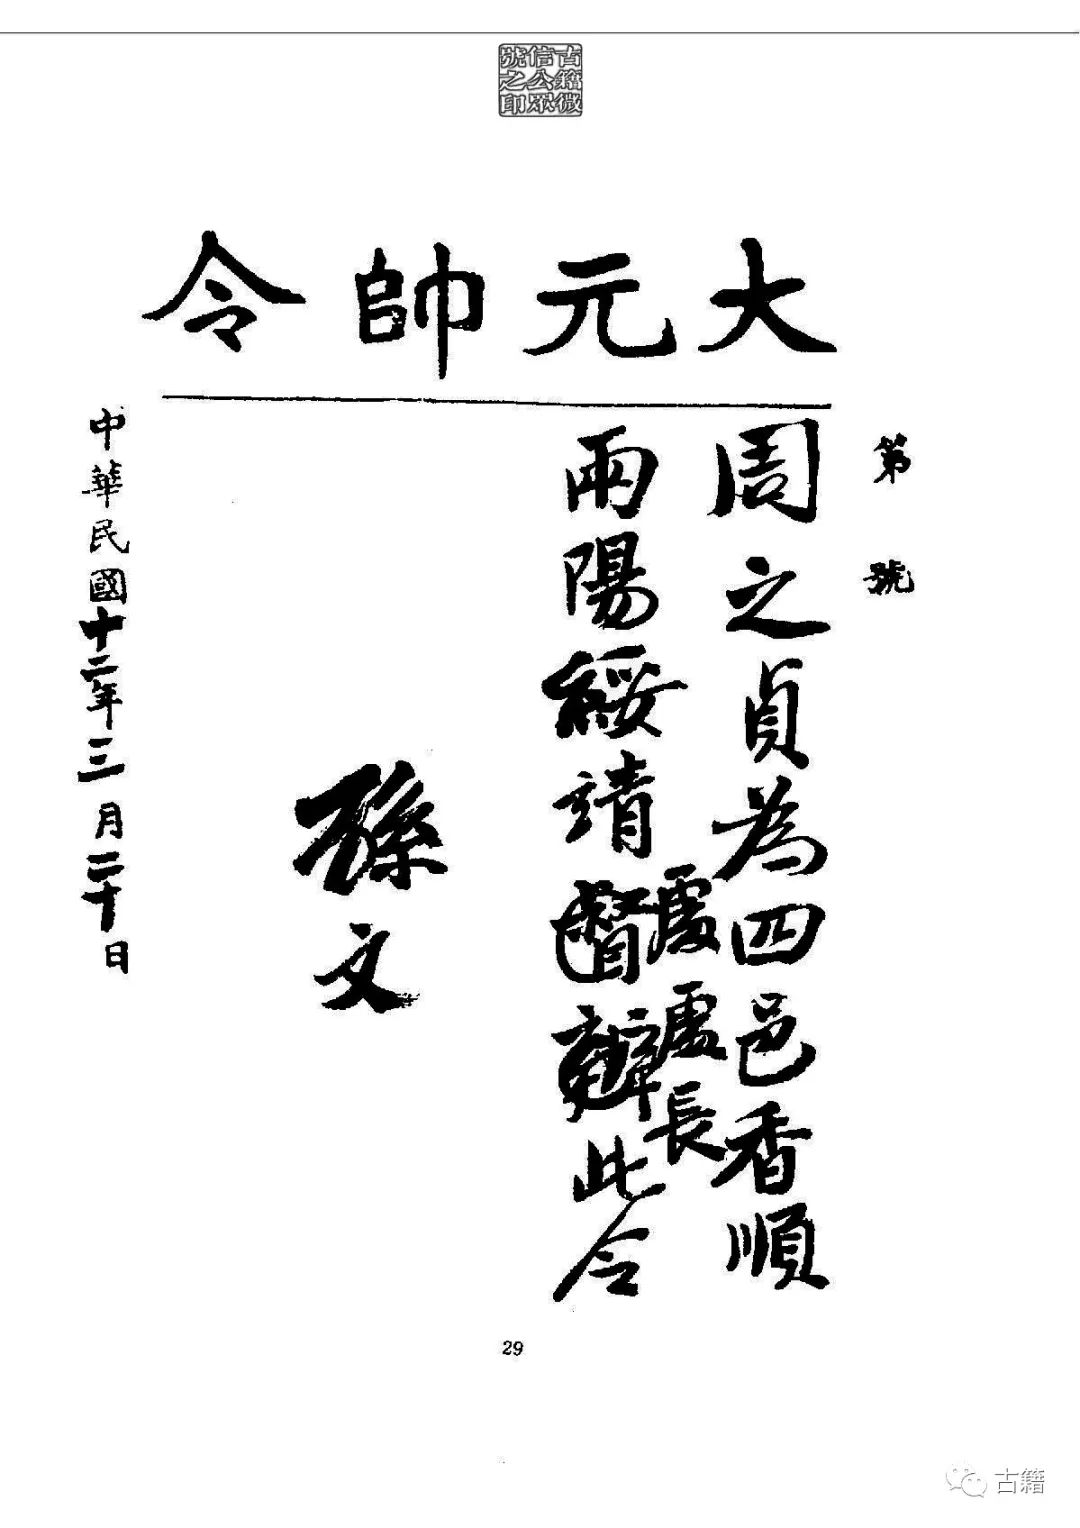 古籍微
信公眾
號之印
大元帥令
第 號
周之貞為四邑香順
處處長
兩陽綏靖督辦此令
孫文
中華民國十二年三月二十日
29
古籍